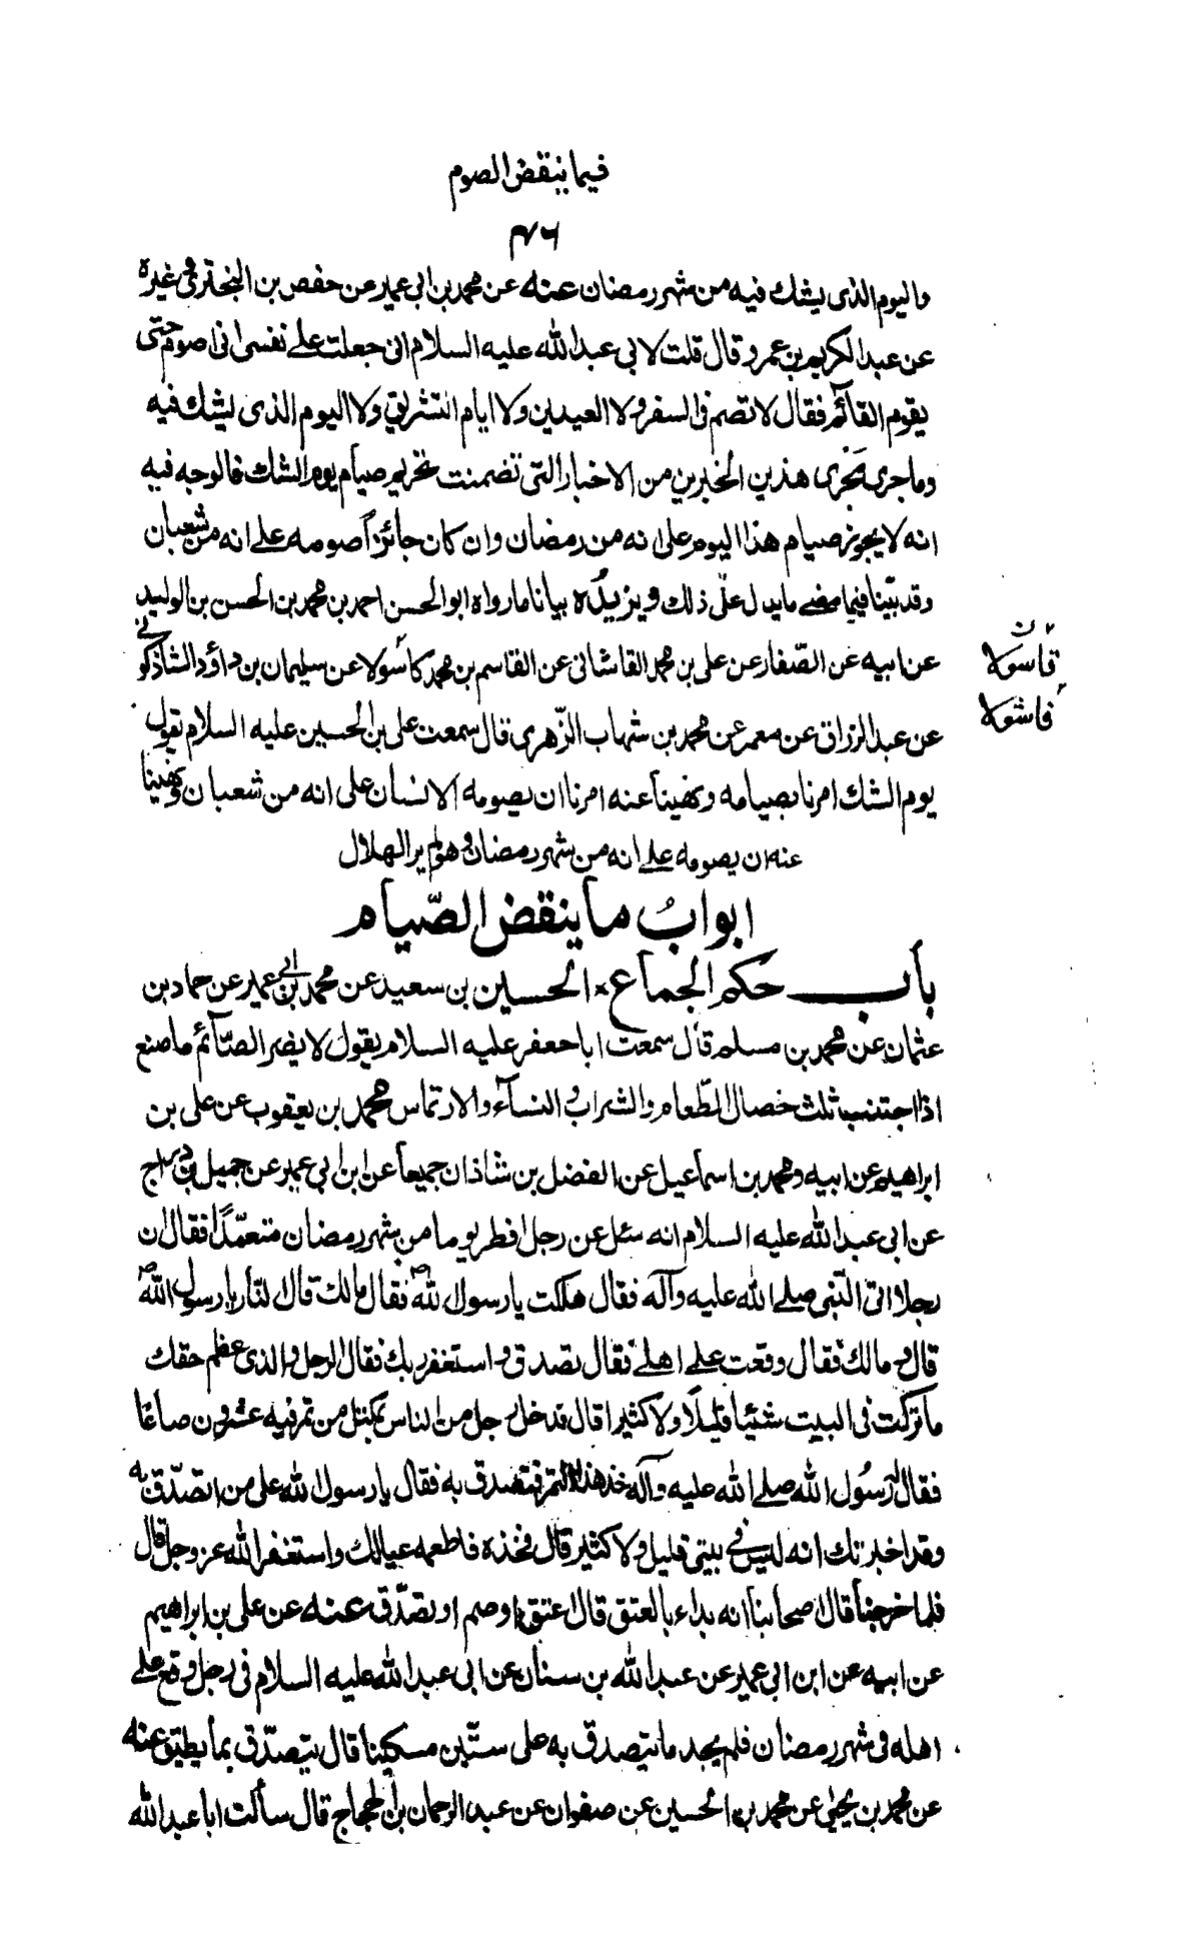 فيما ينقض الصوم
٤٦
واليوم الذى يشك فيه من شهر رمضان عنه عن محمد بن ابي عمير عن حفص بن البخترى و غيره
عن عبد الكريم بن عمرو قال قلت لابي عبد الله عليه السلام انى جعلت على نفسى ان اصوم حتى
يقوم القائم فقال لا تصم فى السفر ولا العيدين ولا ايام التشريق ولا اليوم الذى يشك فيه
وما جرى مجرى هذين الخبرين من الاخبار التى تضمنت تحريم صيام يوم الشك فالوجه فيه
انه لا يجوز صيام هذا اليوم على انه من رمضان وان كان جائزاً صومه على انه من شعبان
وقد بيّنا فيما مضى ما يدل على ذلك ويزيدُه بيانا ما رواه ابو الحسن احمد بن محمد بن الحسن بن الوليد
عن ابيه عن الصّفار عن على بن محمد القاشانى عن القاسم بن محمد كاسولا عن سليمان بن داؤد الشاذكونى
قاسولا
فاشولا
عن عبد الرزاق عن معمر عن محمد بن شهاب الزّهرى قال سمعت على بن الحسين عليه السلام يقول
يوم الشك امرنا بصيامه ونهينا عنه امرنا ان يصومه الانسان على انه من شعبان ونهينا
عنه ان يصومه على انه من شهر رمضان و هو لم ير الهلال
ابوابُ ما ينقض الصّيام
باب حكم الجماع * الحسين بن سعيد عن محمد بن ابى عمير عن حماد بن
عثمان عن محمد بن مسلم قال سمعت ابا جعفر عليه السلام يقول لا يضر الصّائم ما صنع
اذا اجتنب ثلث خصال الطّعام والشراب و النسآء والارتماس محمد بن يعقوب عن على بن
ابراهيم عن ابيه ومحمد بن اسماعيل عن الفضل بن شاذان جميعاً عن ابن ابي عمير عن جميل بن دراج
عن ابى عبد الله عليه السلام انه سئل عن رجل افطر يوما من شهر رمضان متعمّداً فقال ان
رجلا اتى النّبى صلى الله عليه وآله فقال هلكت يا رسول الله ص فقال مالك قال النّار يا رسول الله ص
قال و مالك فقال وقعت على اهلى فقال تصدق و استغفر ربك فقال الرجل والذى عظم حقك
ما تركت فى البيت شيئا قليلاً ولا كثيرا قال فدخل رجل من الناس بمكتل من تمر فيه عشرون صاعًا
فقال رسُول الله صلى الله عليه وآله خذ هذا التمر فتصدق به فقال يا رسول الله على من اتصدّق به
وقد اخبرتك انه ليس فى بيتى قليل ولا كثير قال فخذه فاطعمه عيالك واستغفر الله عز وجل قال
فلما خرجنا قال اصحابنا انه بداء بالعتق قال اعتق او صم او تصدّق عنه عن على بن ابراهيم
عن ابيه عن ابن ابى عمير عن عبد الله بن سنان عن ابى عبد الله عليه السلام فى رجل وقع على
اهله فى شهر رمضان فلم يجد ما يتصدق به على ستّين مسكينا قال يتصدّق بما يطيق عنه
عن محمد بن يحيى عن محمد بن الحسين عن صفوان عن عبد الرحمان بن الحجاج قال سألت ابا عبد الله